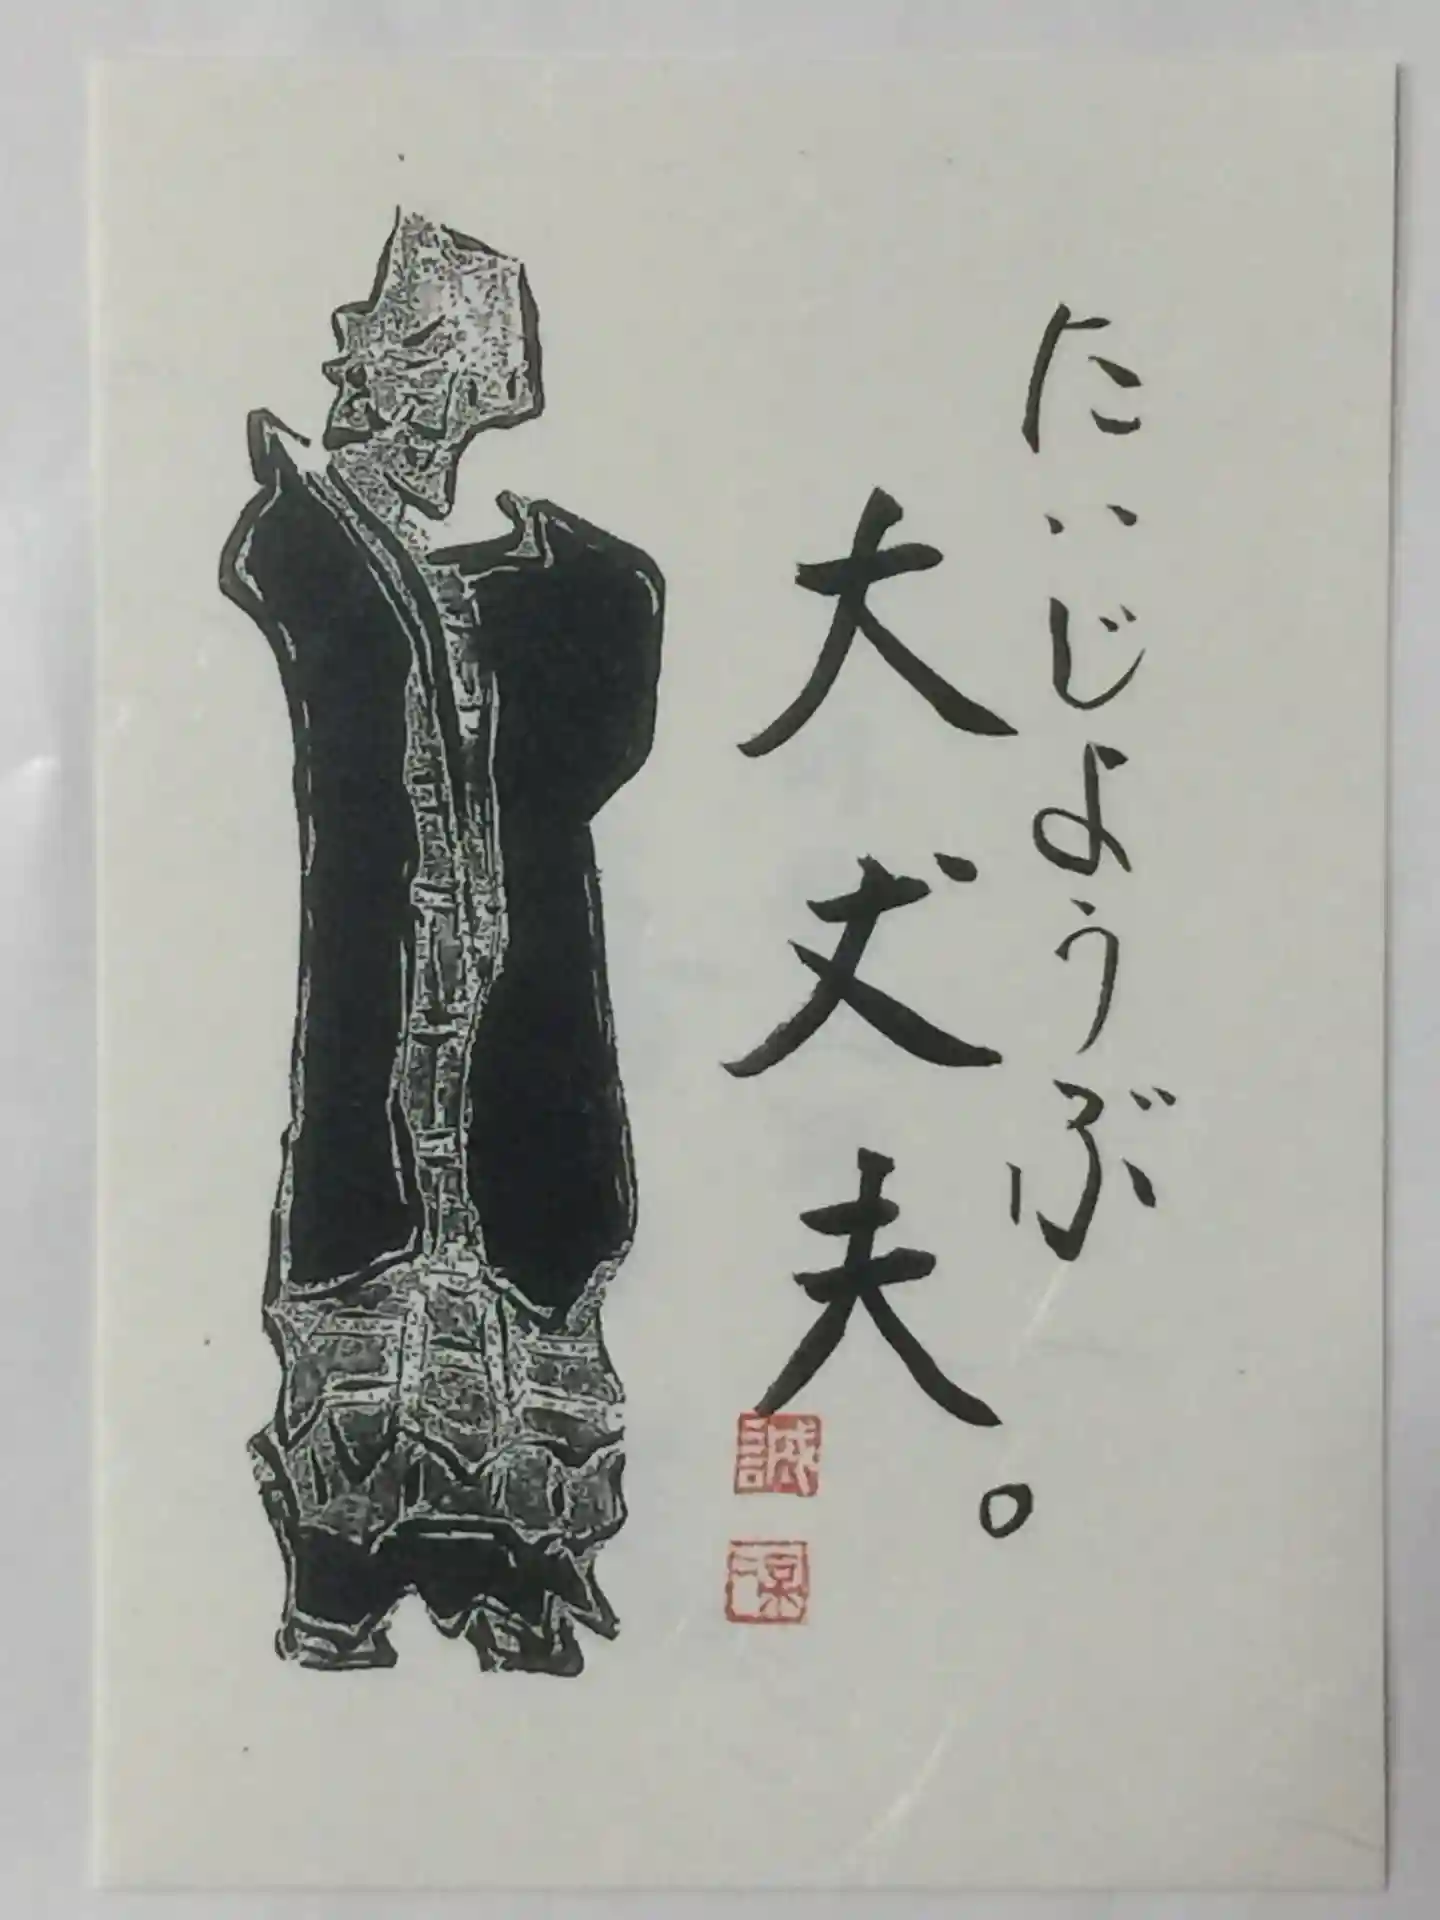 たいじょうぶ
大丈夫。
誠